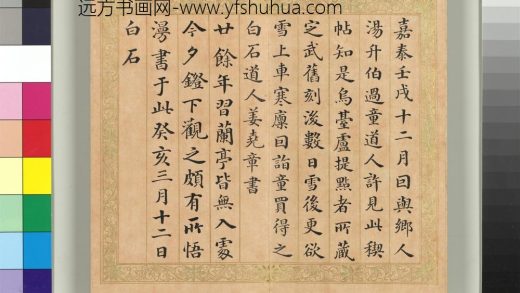 远方书画网-www.yfshuhua.com
嘉泰壬戌十二月因與鄉人
湯升伯過童道人許見此稧
帖知是烏臺盧提點者所藏
定武舊刻後數日雪後更欲
雪上車寒凜曰詣童買得之
白石道人姜堯章書
廿餘年習蘭亭皆無入處
今夕鐙下觀之頗有所悟
漫書于此癸亥三月十二日
白石